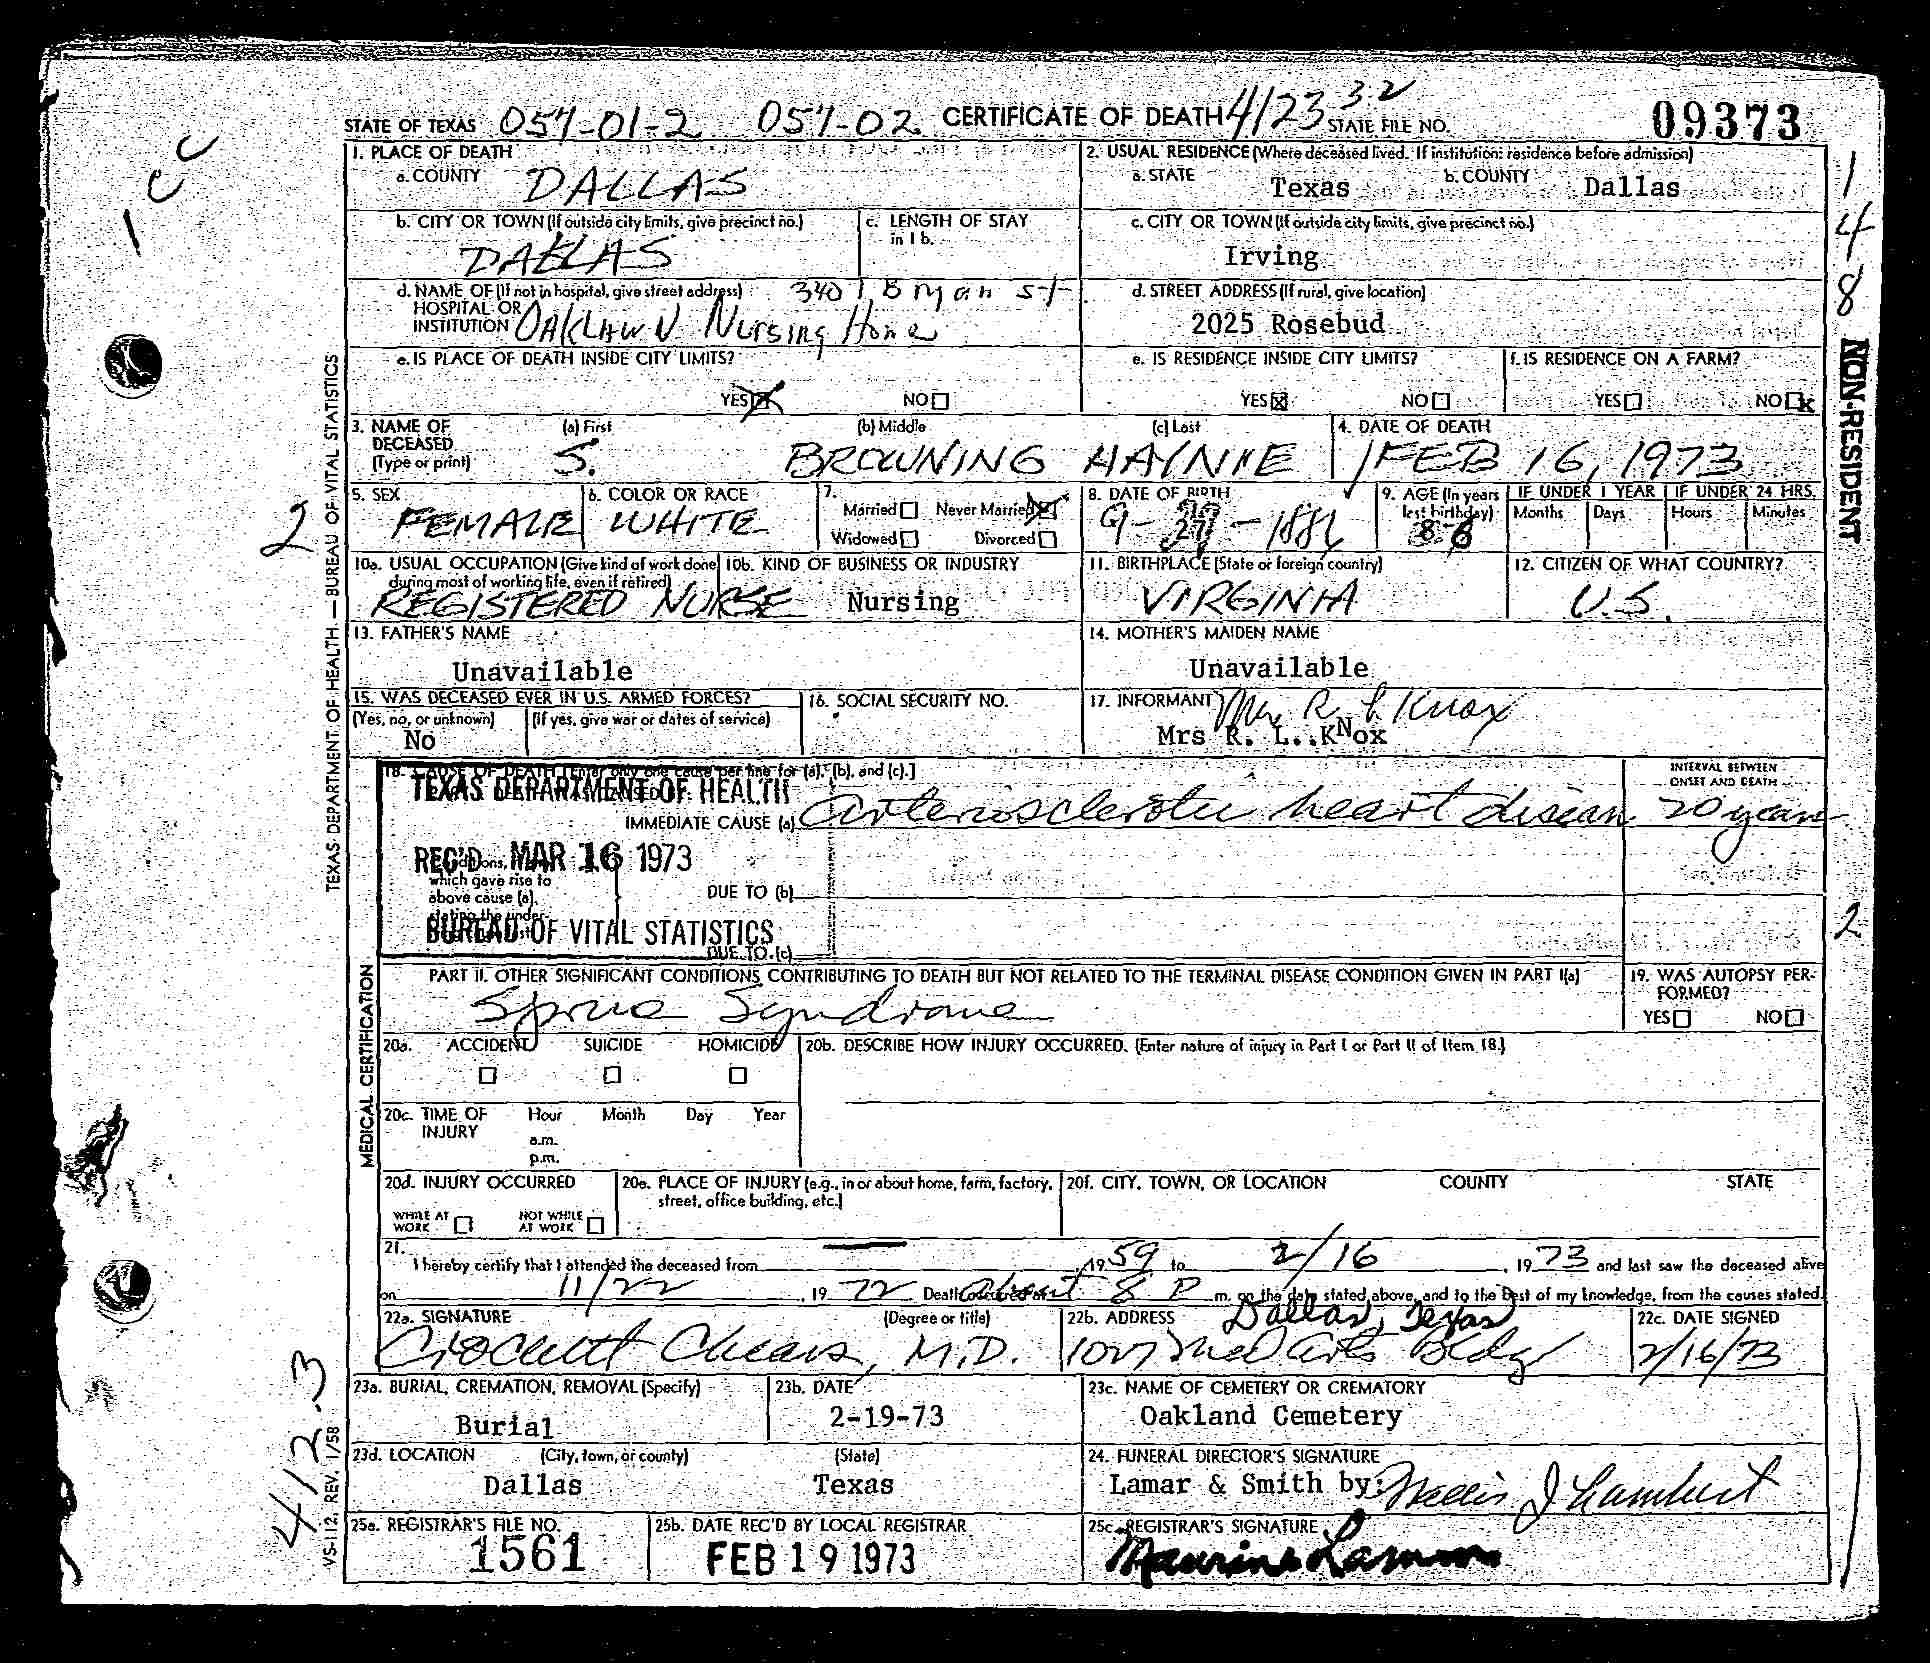 STATE OF TEXAS 057-01-2 057-02 CERTIFICATE OF DEATH 4/23 32 STATE FILE NO. 09373
1. PLACE OF DEATH
a. COUNTY DALLAS
2. USUAL RESIDENCE (Where deceased lived. If institution: residence before admission)
a. STATE Texas b. COUNTY Dallas
b. CITY OR TOWN (If outside city limits, give precinct no.)
DALLAS
c. LENGTH OF STAY
in 1 b.
c. CITY OR TOWN (If outside city limits, give precinct no.)
Irving
d. NAME OF (If not in hospital, give street address) 3401 Bryan St
HOSPITAL OR
INSTITUTION OAKLAWN Nursing Home
d. STREET ADDRESS (If rural, give location)
2025 Rosebud
e. IS PLACE OF DEATH INSIDE CITY LIMITS?
YES X NO
e. IS RESIDENCE INSIDE CITY LIMITS?
YES X NO
f. IS RESIDENCE ON A FARM?
YES NO X
NON-RESIDENT
3. NAME OF (a) First (b) Middle (c) Last
DECEASED
(Type or print) S. BROWNING HAYNIE
4. DATE OF DEATH
FEB 16, 1973
5. SEX
FEMALE
6. COLOR OR RACE
WHITE
7.
Married Never Married X
Widowed Divorced
8. DATE OF BIRTH
9-27-1886
9. AGE (In years
last birthday)
86
IF UNDER 1 YEAR
Months Days
IF UNDER 24 HRS.
Hours Minutes
10a. USUAL OCCUPATION (Give kind of work done
during most of working life, even if retired)
REGISTERED NURSE
10b. KIND OF BUSINESS OR INDUSTRY
Nursing
11. BIRTHPLACE (State or foreign country)
VIRGINIA
12. CITIZEN OF WHAT COUNTRY?
U.S.
13. FATHER'S NAME
Unavailable
14. MOTHER'S MAIDEN NAME
Unavailable
15. WAS DECEASED EVER IN U.S. ARMED FORCES?
(Yes, no, or unknown) (If yes, give war or dates of service)
No
16. SOCIAL SECURITY NO.
17. INFORMANT Mrs R. L. Knox
Mrs R. L. Knox
TEXAS DEPARTMENT OF HEALTH — BUREAU OF VITAL STATISTICS
18. CAUSE OF DEATH [Enter only one cause per line for (a), (b), and (c).]
TEXAS DEPARTMENT OF HEALTH
IMMEDIATE CAUSE (a) arteriosclerotic heart disease
INTERVAL BETWEEN
ONSET AND DEATH
20 years
REC'D MAR 16 1973
which gave rise to
above cause (a),
stating the under-
DUE TO (b)
BUREAU OF VITAL STATISTICS
DUE TO (c)
PART II. OTHER SIGNIFICANT CONDITIONS CONTRIBUTING TO DEATH BUT NOT RELATED TO THE TERMINAL DISEASE CONDITION GIVEN IN PART I(a)
Sprue Syndrome
19. WAS AUTOPSY PER-
FORMED?
YES NO
MEDICAL CERTIFICATION
20a. ACCIDENT SUICIDE HOMICIDE
20b. DESCRIBE HOW INJURY OCCURRED. (Enter nature of injury in Part I or Part II of Item 18.)
20c. TIME OF Hour Month Day Year
INJURY
a.m.
p.m.
20d. INJURY OCCURRED
WHILE AT
WORK
NOT WHILE
AT WORK
20e. PLACE OF INJURY (e.g., in or about home, farm, factory,
street, office building, etc.)
20f. CITY, TOWN, OR LOCATION COUNTY STATE
21.
I hereby certify that I attended the deceased from — , 1959 to 2/16 , 1973 and last saw the deceased alive
on 11/22 , 1972 Death occurred at about 8 P m. on the date stated above, and to the best of my knowledge, from the causes stated.
22a. SIGNATURE (Degree or title)
Crockett Cheears, M.D.
22b. ADDRESS Dallas, Texas
1027 Med Arts Bldg
22c. DATE SIGNED
2/16/73
23a. BURIAL, CREMATION, REMOVAL (Specify)
Burial
23b. DATE
2-19-73
23c. NAME OF CEMETERY OR CREMATORY
Oakland Cemetery
23d. LOCATION (City, town, or county) (State)
Dallas Texas
24. FUNERAL DIRECTOR'S SIGNATURE
Lamar & Smith by: J Lambert
25a. REGISTRAR'S FILE NO.
1561
25b. DATE REC'D BY LOCAL REGISTRAR
FEB 19 1973
25c. REGISTRAR'S SIGNATURE
VS-112, REV. 1/58
412.3
1
4
8
2
2